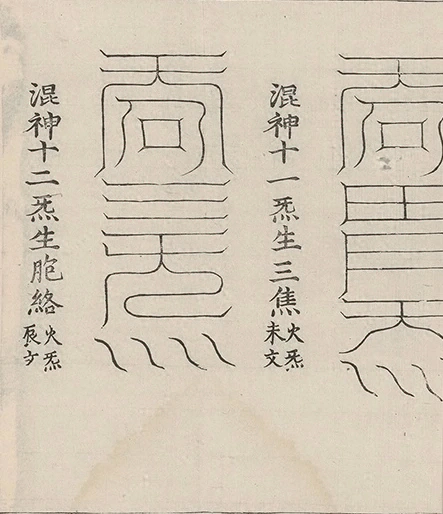 混神十一炁生三焦
火炁
未文
混神十二炁生胞絡
火炁
辰文